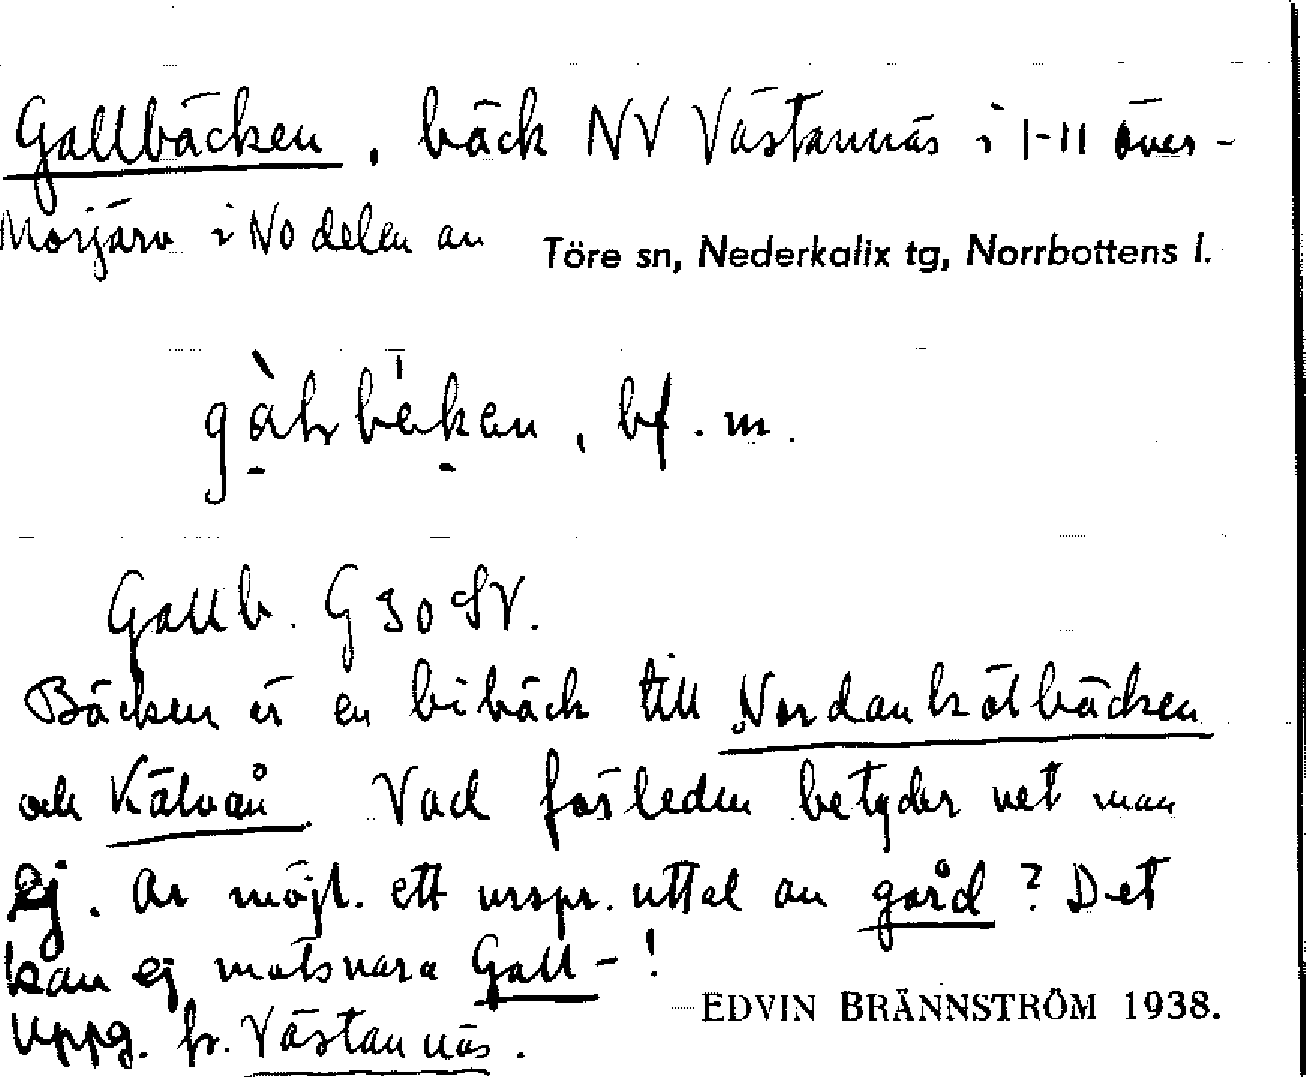 Gallbäcken, bäck NV Västannäs i 1-11 Över-
Morjärv i NO delen av Töre sn, Nederkalix tg, Norrbottens l.
bf. m.
Gallb. G 30 SV.
Bäcken är en bibäck till Nordankölbäcken
och Kälvån. Vad förleden betyder vet man
ej. Är möjl. ett urspr. uttal av gård? Det
kan ej motsvara Gall-!
Uppg. fr. Västannäs.
EDVIN BRÄNNSTRÖM 1938.